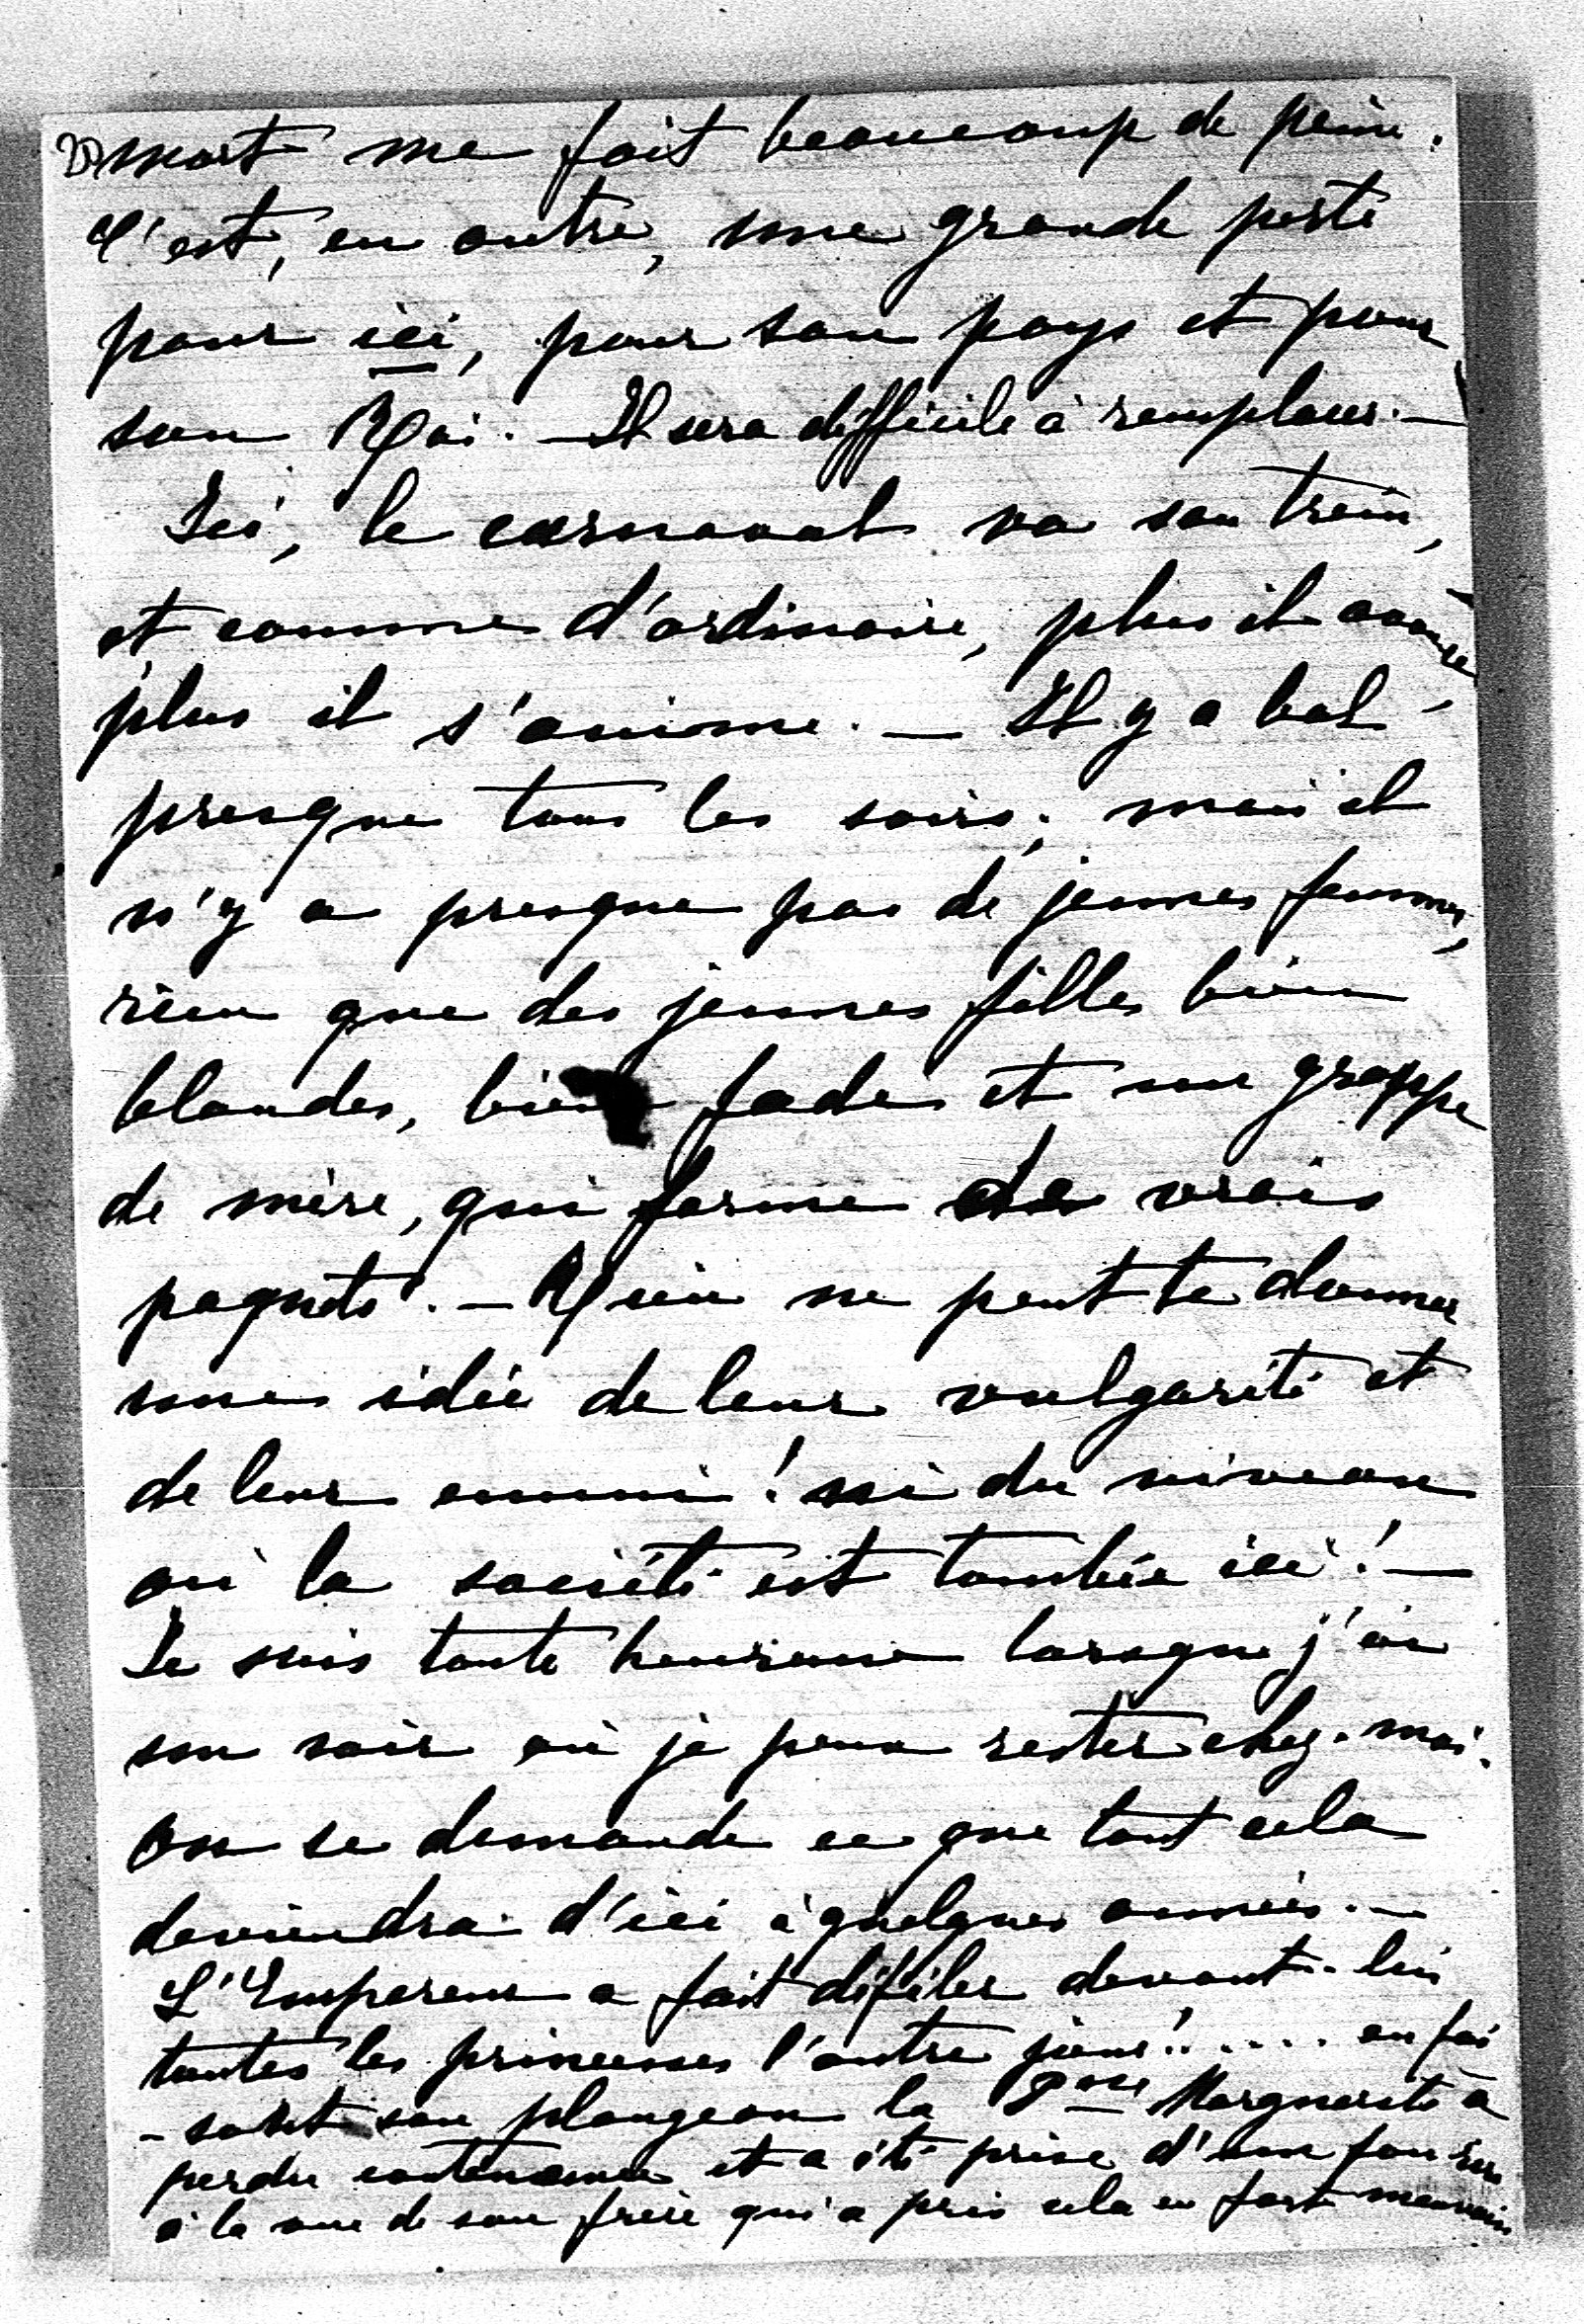 2) mort me fait beaucoup de peine.
C'est, en outre, une grande perte
pour ici, pour son pays et pour
son Roi. — Il sera difficile à remplacer. —
Ici, le carnaval va son train,
et comme d'ordinaire, plus il avance,
plus il s'anime. — Il y a bal
presque tous les soirs; mais il
n'y a presque pas de jeunes femmes,
rien que des jeunes filles bien
blondes, bien fades et une grappe
de mère, qui forme de vrais
paquets. — Rien ne peut te donner
une idée de leur vulgarité et
de leur ennui! ni du niveau
où la société est tombée ici! —
Je suis toute heureuse lorsque j'ai
un soir où je peux rester chez-moi.
On se demande ce que tout cela
deviendra d'ici à quelques années. —
L'Empereur a fait défiler devant-lui
toutes les princesses l'autre jour!..... en fai
-sant son plongeon la Psse Marguerite a
perdu contenance et a été prise d'un fou rire
à la vue de son frère qui a pris cela en fort mauvais